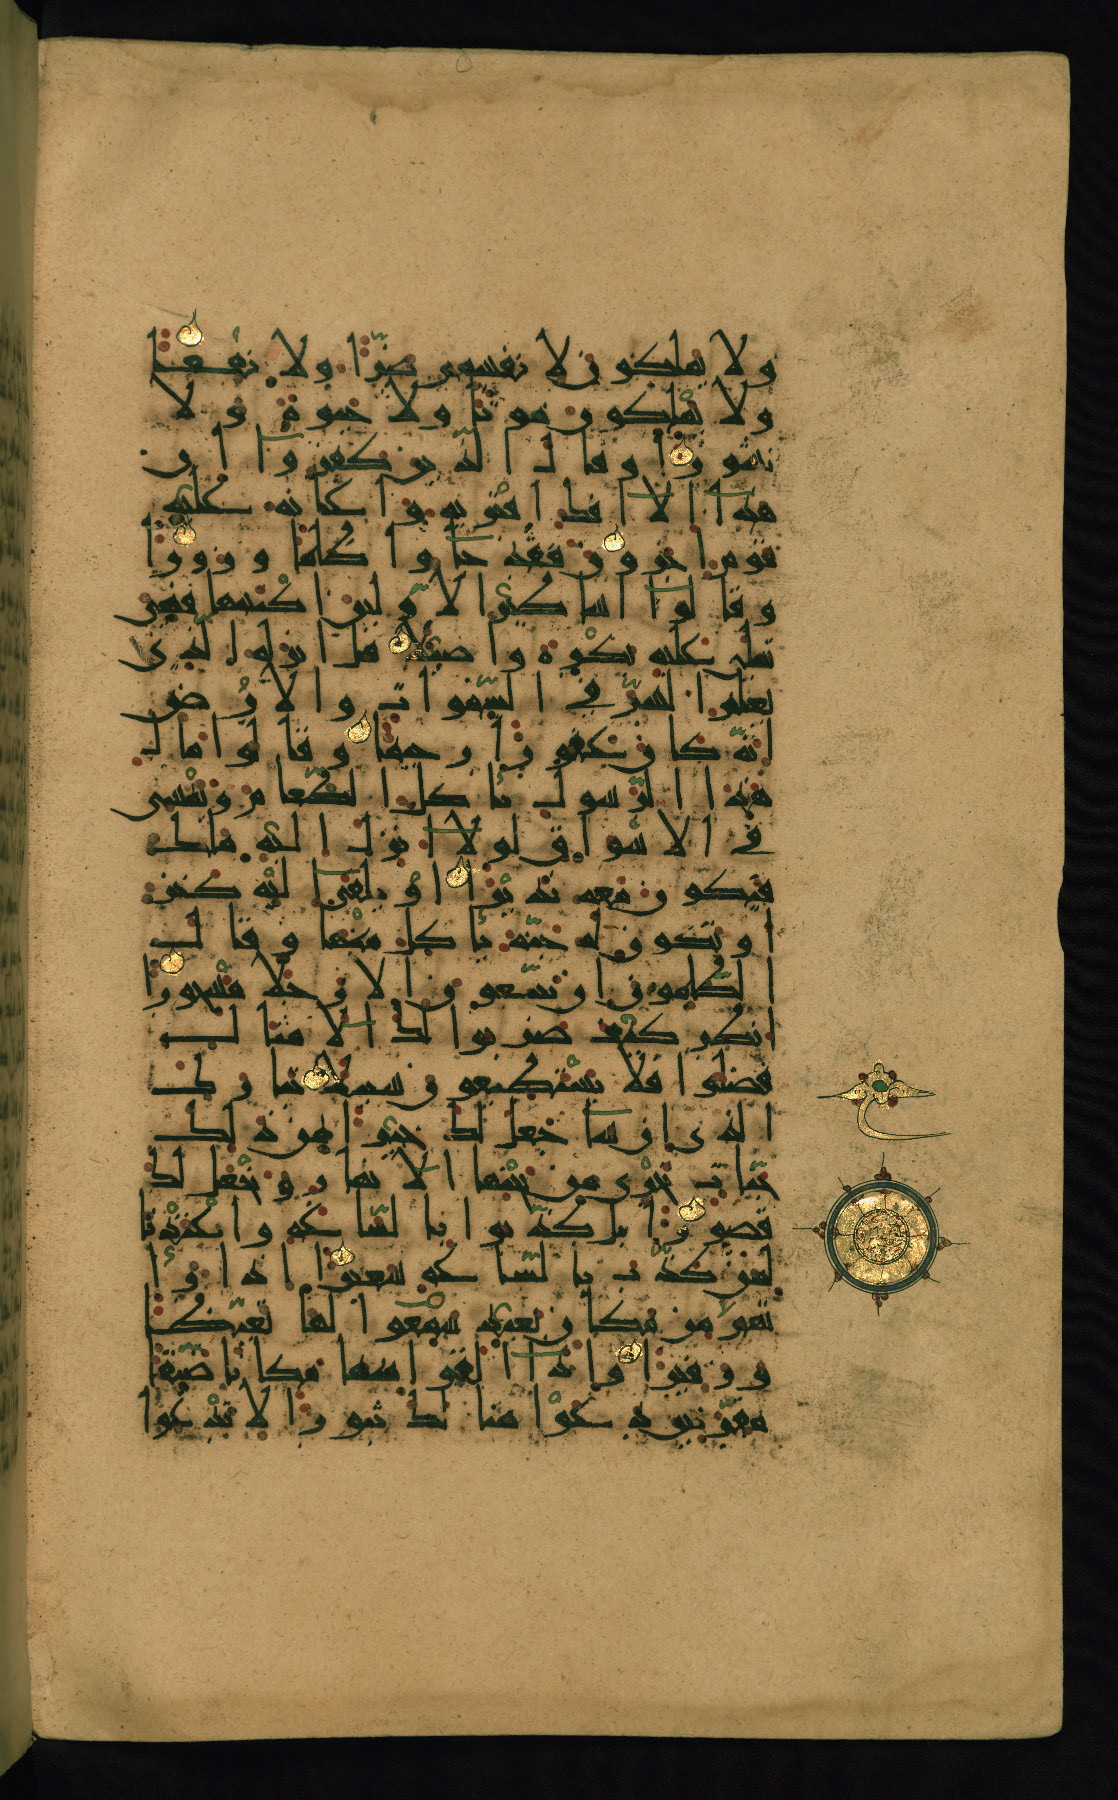 ولا يملكون لانفسهم ضرّا ولا نفعا
ولا يملكون موتا ولا حيوة ولا
نشورا وقال الذين كفروا ان
هذا الا افك افتريه واعانه عليه
قوم اخرون فقد جاوا ظلما وزورا
وقالوا اساطير الاولين اكتتبها فهى
تملى عليه بكرة واصيلا قل انزله الذى
يعلم السّر فى السّموات والارض
انّه كان غفورا رحيما وقالوا مال
هذا الرّسول ياكل الطّعام ويمشى
فى الاسواق لولا انزل اليه ملك
فيكون معه نذيرا او يلقى اليه كنز
او تكون له جنّة ياكل منها وقال
الظّلمون ان تتّبعون الا رجلا مسحورا
انظر كيف ضربوا لك الامثال
فضلّوا فلا يستطيعون سبيلا تبارك
الذى ان شا جعل لك خيرا من ذلك
جنّات تجرى من تحتها الانهار ويجعل لك
قصورا بل كذّبوا بالسّاعة واعتدنا
لمن كذّب بالسّاعة سعيرا اذا را
تهم من مكان بعيد سمعوا لها تغيّظا
وزفيرا واذا القوا منها مكانا ضيّقا
مقرّنين دعوا هنالك ثبورا لا تدعوا